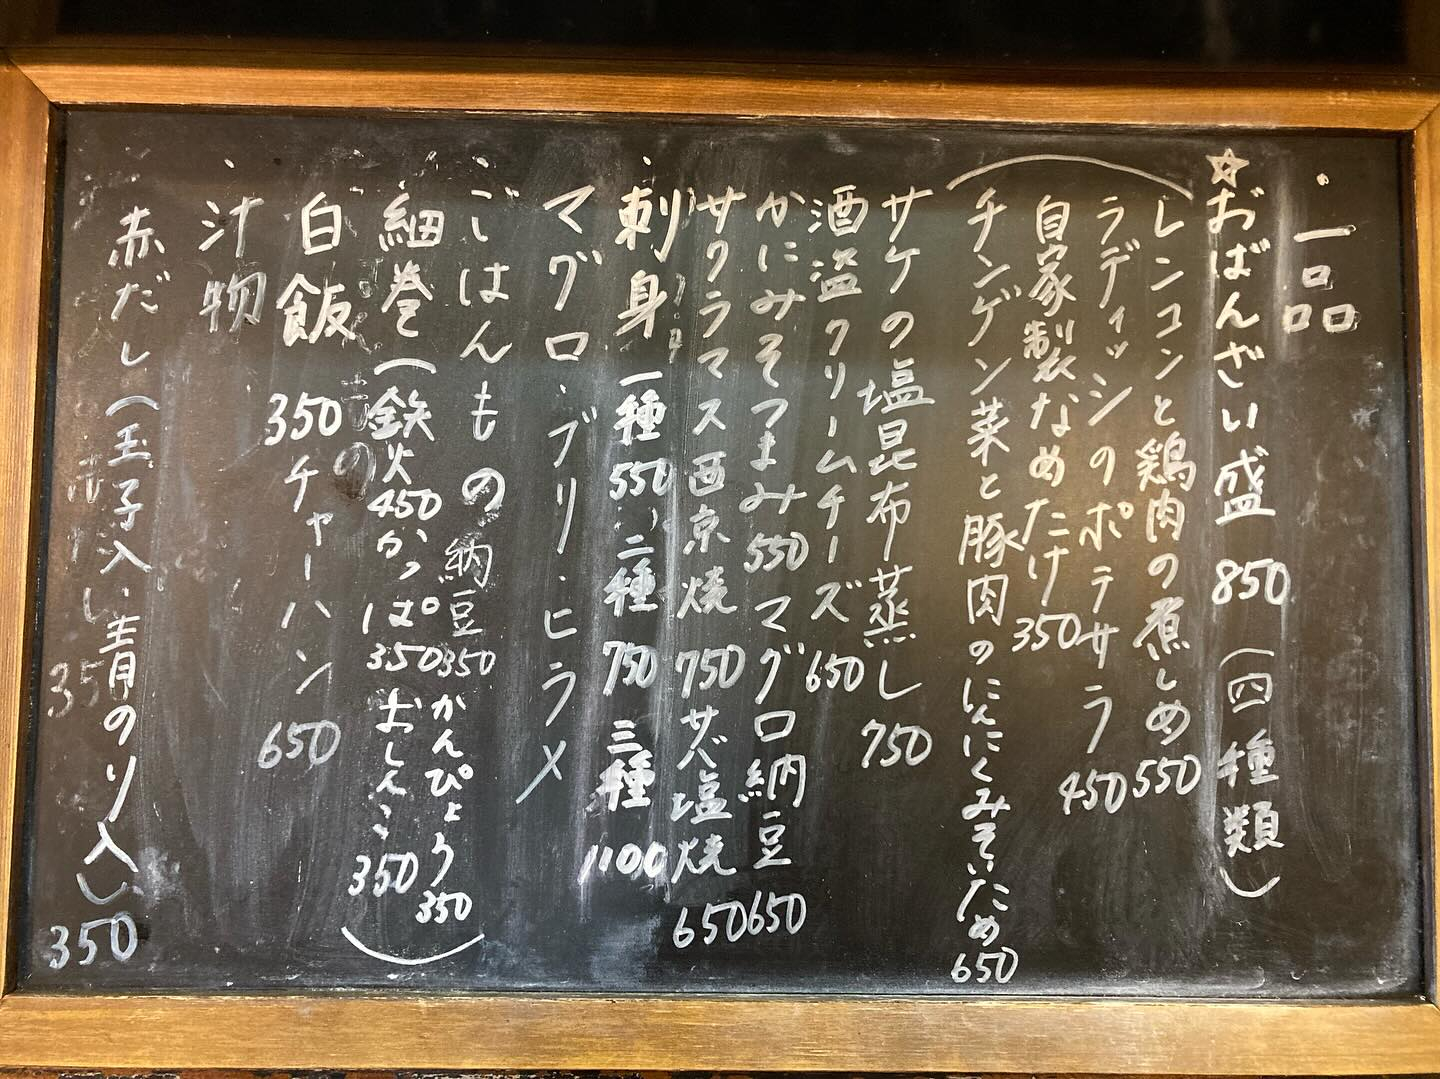 ・一品
☆おばんざい盛 850(四種類)
レンコンと鶏肉の煮しめ 550
ラディッシュのポテサラ 450
自家製なめたけ 350
チンゲン菜と豚肉のにんにくみそいため 650
サケの塩昆布蒸し 750
酒盗クリームチーズ 650
かにみそつまみ 550 マグロ納豆 650
サクラマス西京焼 750 サバ塩焼 650
・刺身 一種 550 二種 750 三種 1100
マグロ・ブリ・ヒラメ
・ごはんもの
納豆 350 かんぴょう 350
・細巻(鉄火 450 かっぱ 350 おしんこ 350)
・白飯 350 チャーハン 650
・汁物
赤だし(玉子入り 青のり入り) 350